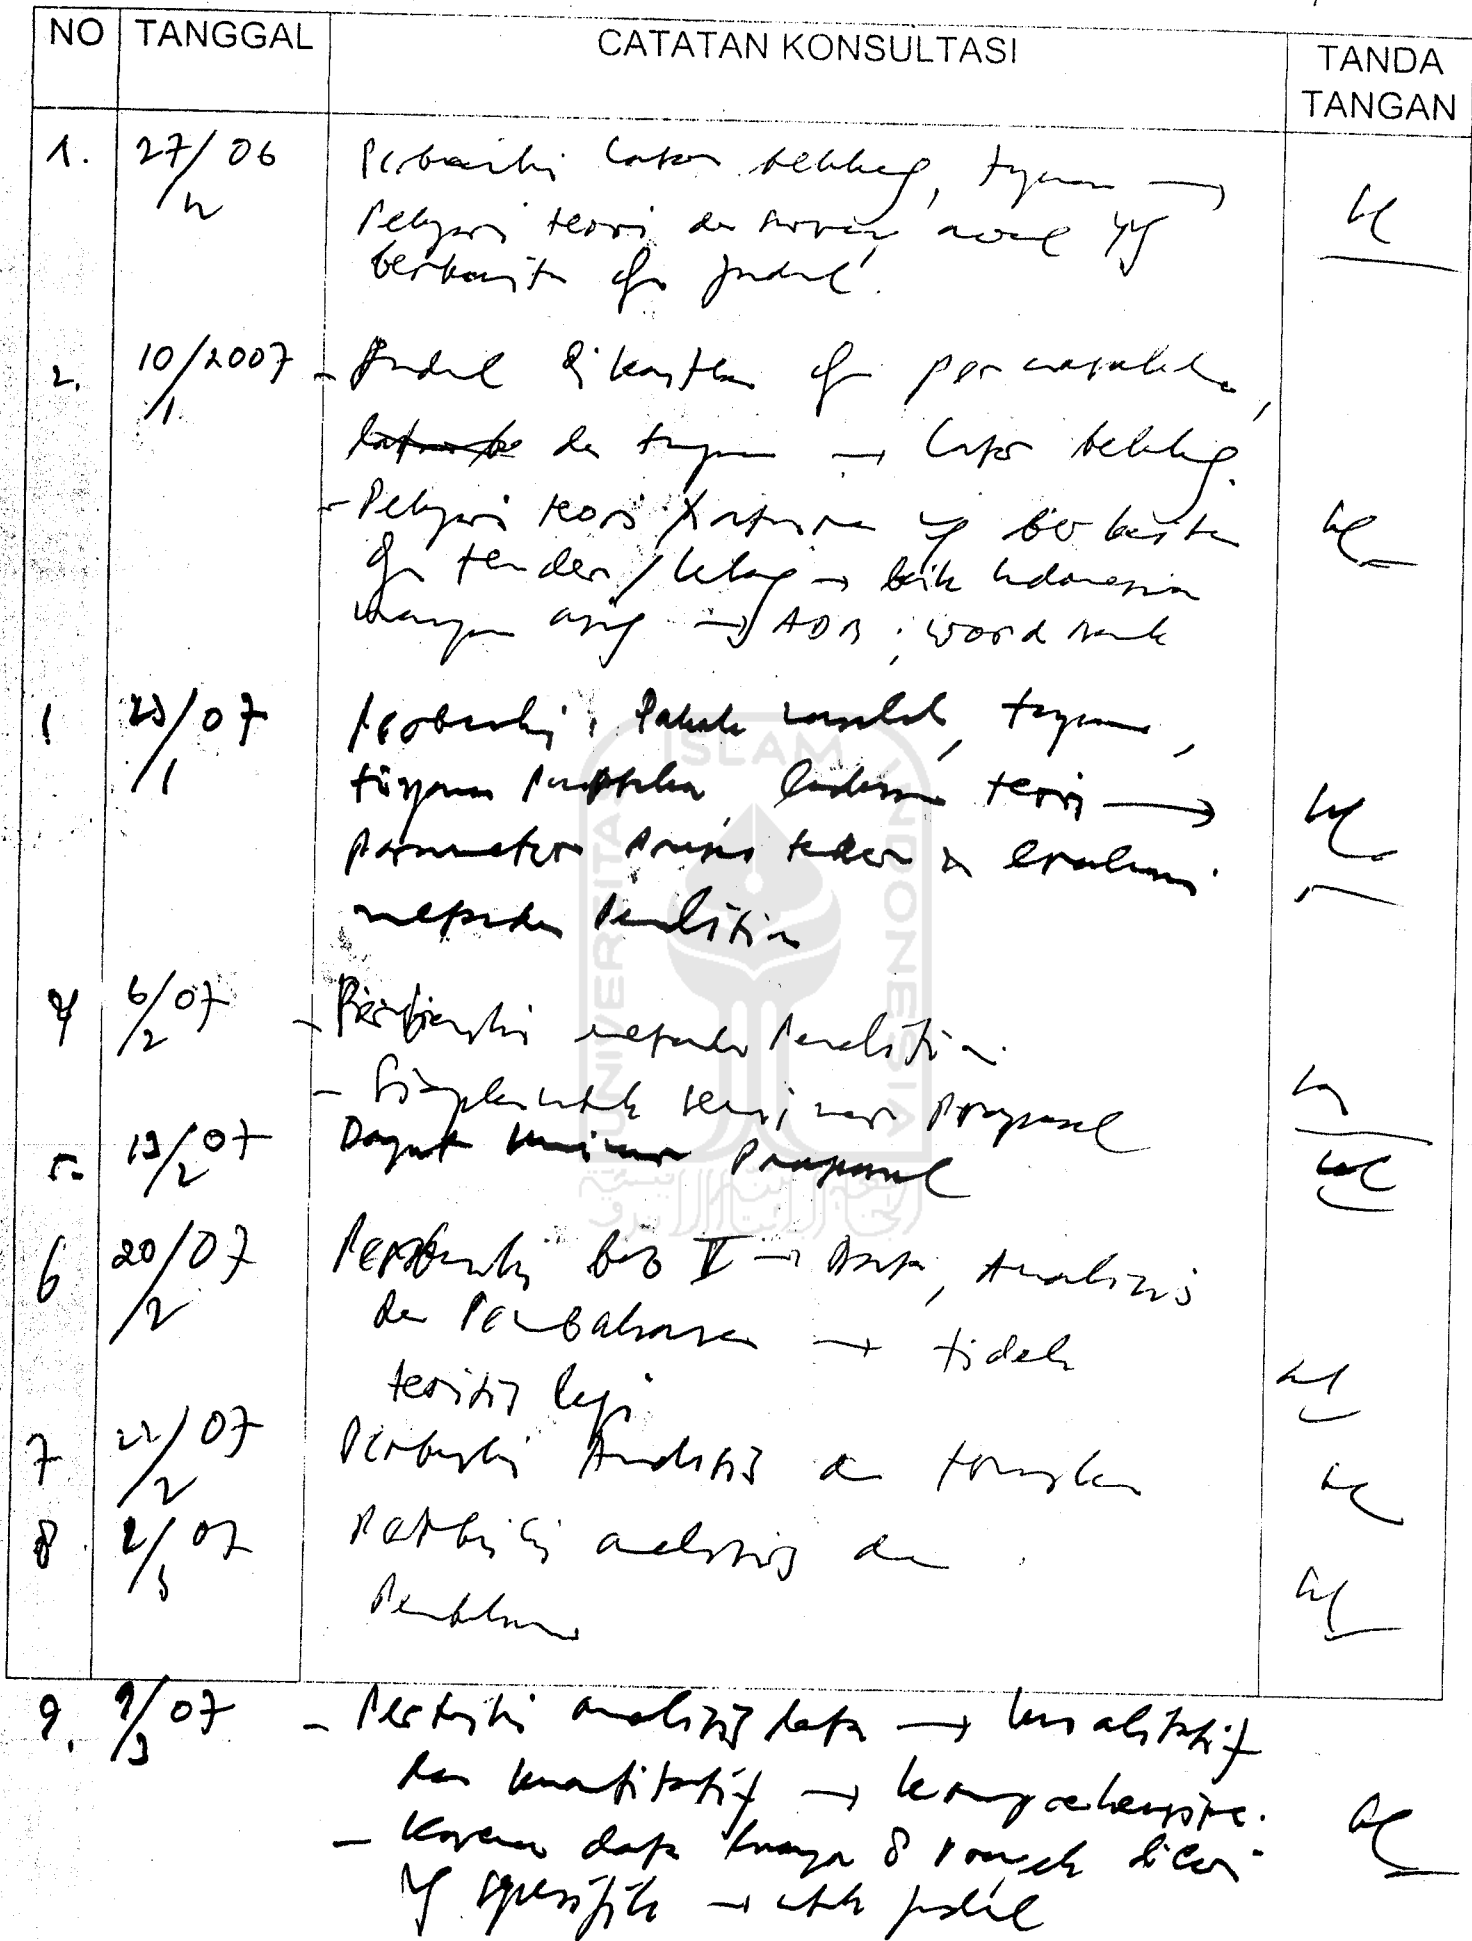 NO TANGGAL CATATAN KONSULTASI TANDA TANGAN
1. 27/06 Perbaiki latar belakang, tujuan →
/12 Pelajari teori dan survey awal yg
berkaitan dgn judul.
2. 10/2007 - Judul dikaitkan dgn permasalahan,
/1 dan tujuan → latar belakang.
- Pelajari teori yg berkaitan
dgn tender/lelang → baik Indonesia
maupun asing → ADB, Word Bank
23/07 Perbaiki, Pokok masalah, tujuan,
/1 tinjauan pustaka, landasan teori →
parameter proses tender & evaluasi
metode Penelitian
4 6/07 - Perbaiki metode Penelitian
/2 - Siapkan utk seminar Proposal
5. 13/07 Dapat seminar Proposal
/2
6 20/07 Perbaiki bab V → Data, Analisis
/2 dan Pembahasan → tidak
teoritis lagi
7 22/07 Perbaiki Analisis dan
/2
8 2/07 Perbaiki analisis dan
/3 Pembahasan
9. 9/07 - Perbaiki analisis data → kualitatif
/3 dan kuantitatif → komprehensive.
- Karena data hanya 8 proyek dicari
yg spesifik → utk judul
ISLAM
UNIVERSITAS
INDONESIA